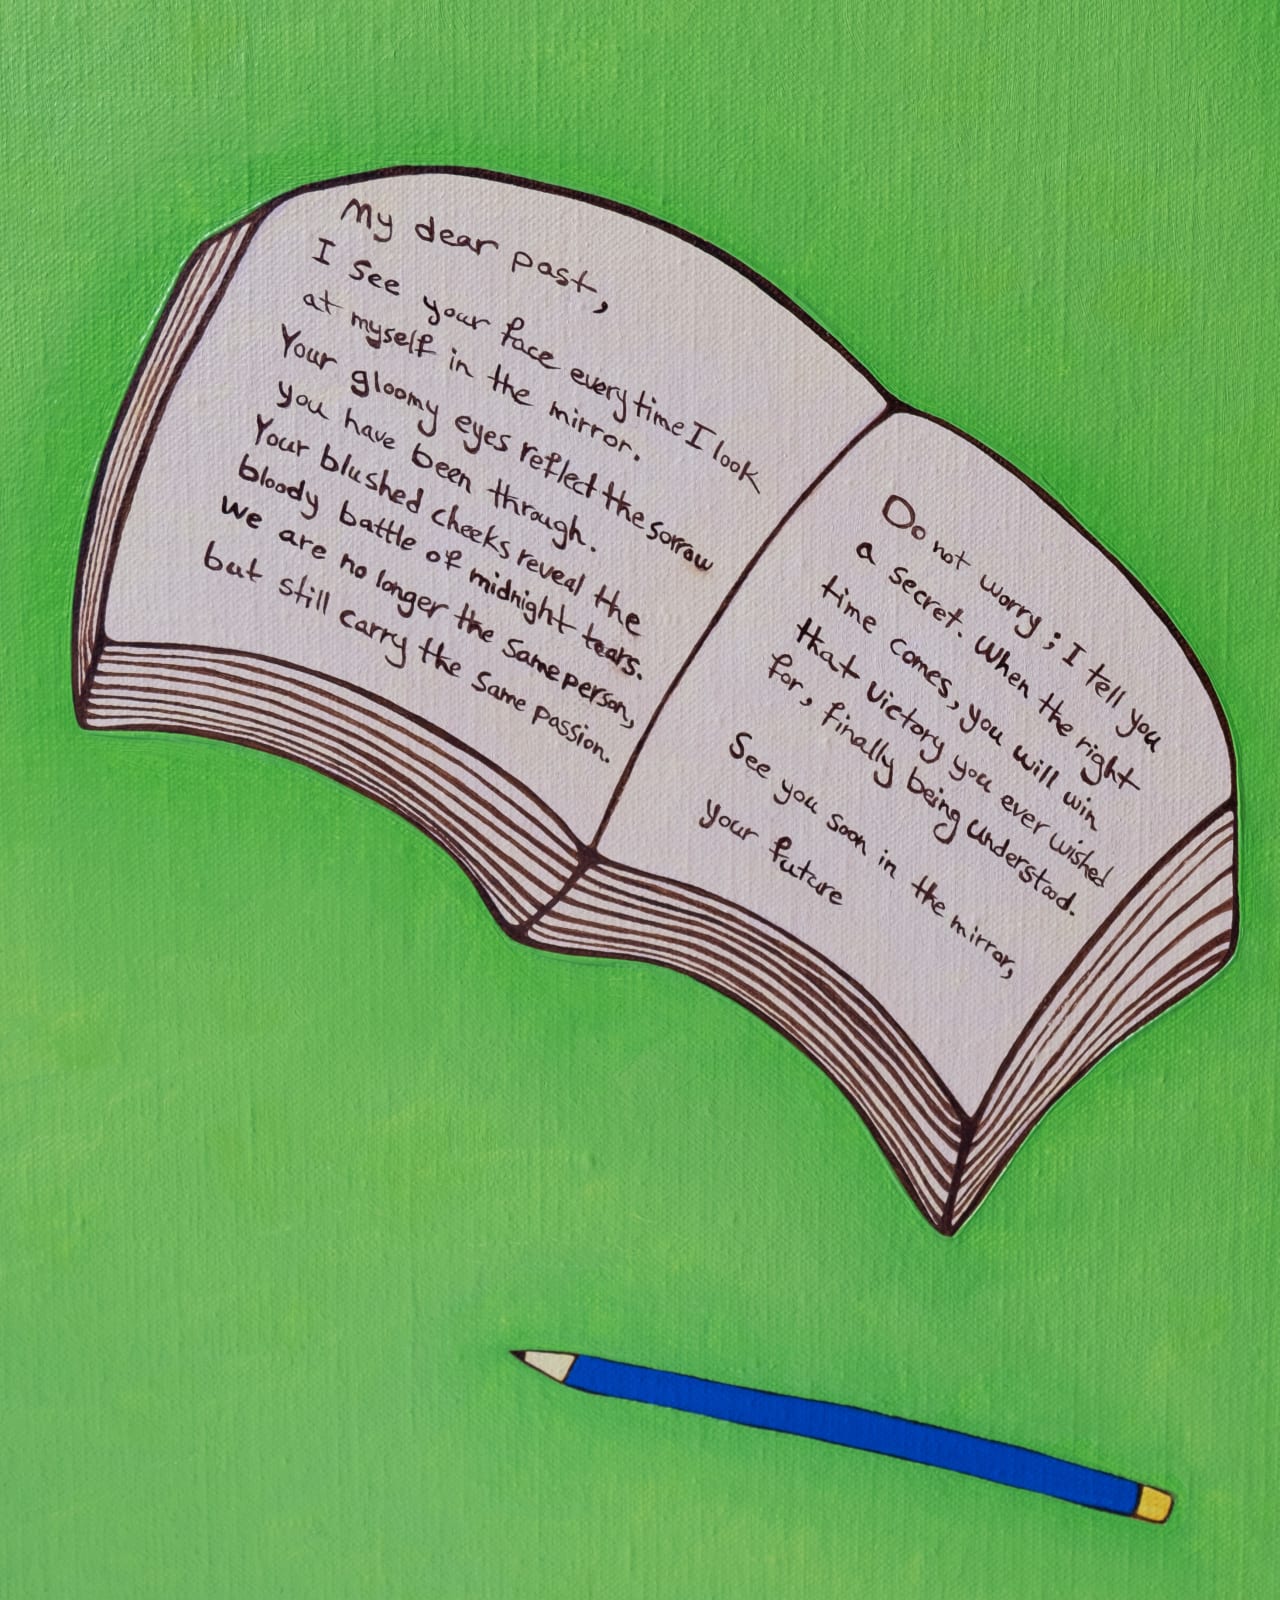 My dear past,
I see your face every time I look
at myself in the mirror.
Your gloomy eyes reflect the sorrow
you have been through.
Your blushed cheeks reveal the
bloody battle of midnight tears.
We are no longer the same person,
but still carry the same passion.
Do not worry; I tell you
a secret. When the right
time comes, you will win
that victory you ever wished
for, finally being understood.
See you soon in the mirror,
your future